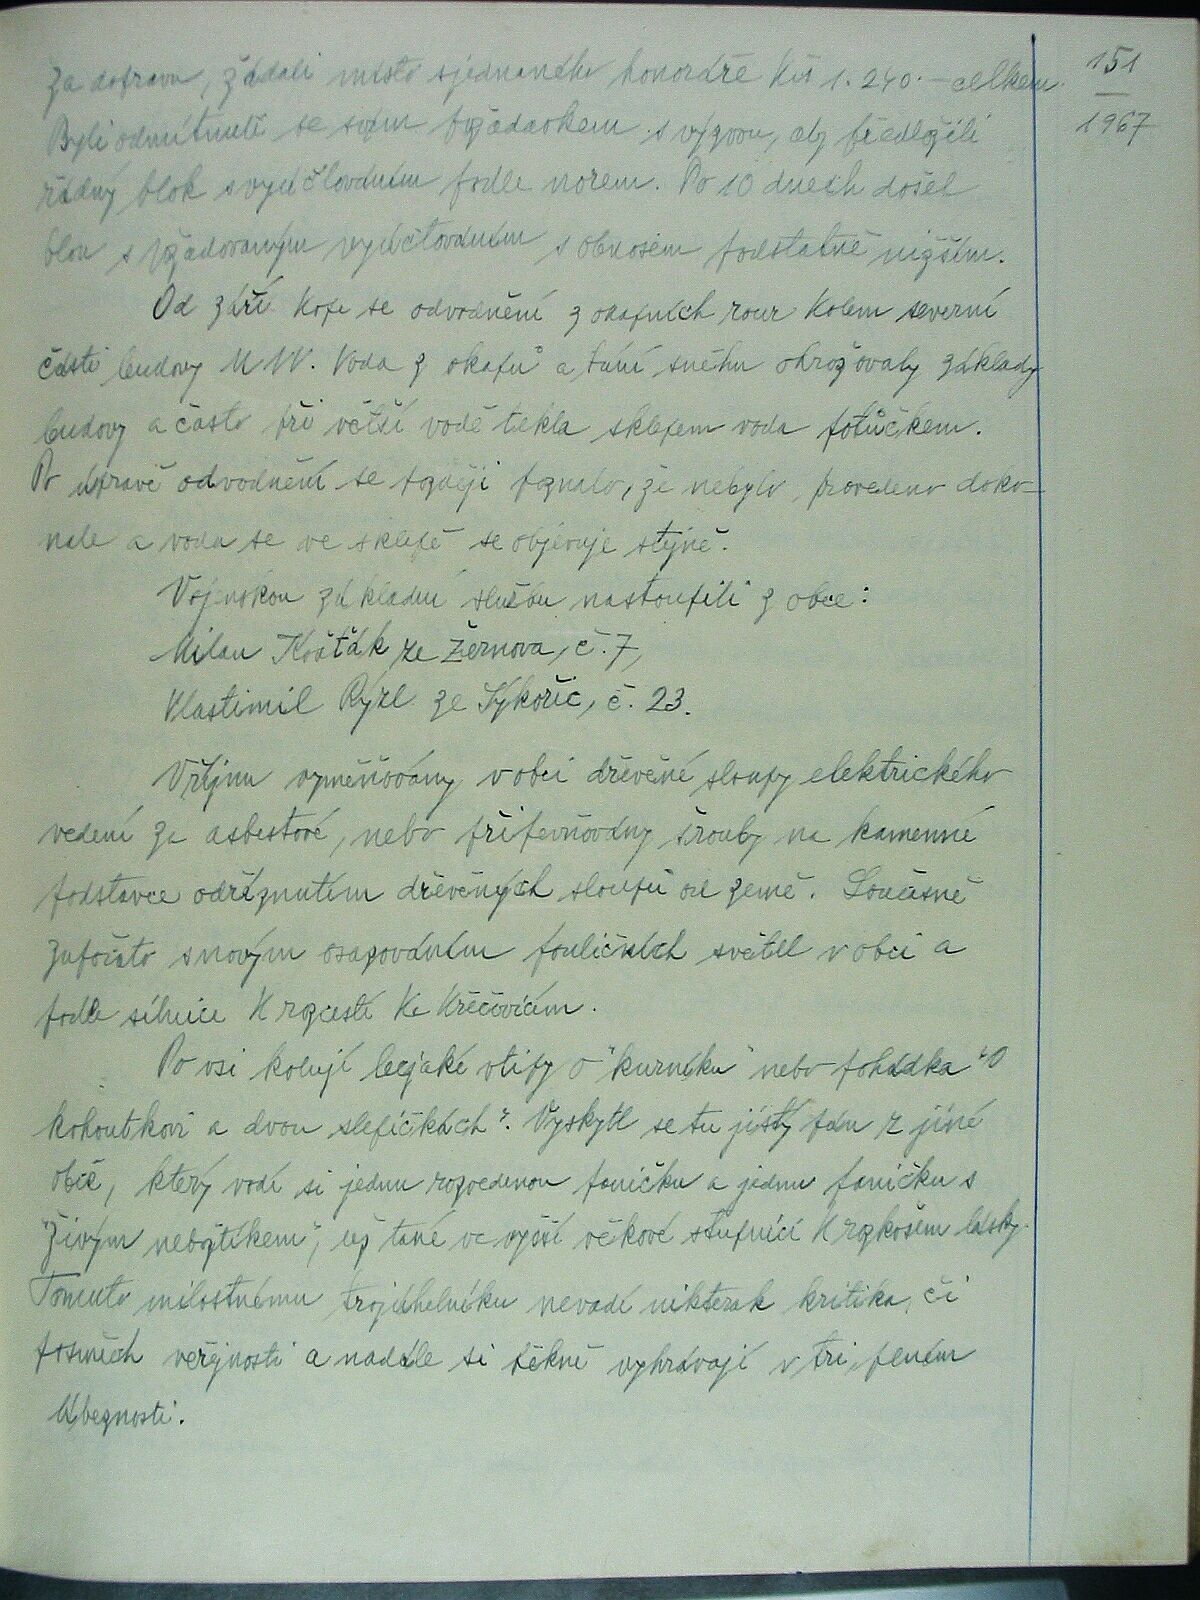 151
1967
za dopravu, žádali místo sjednaného honoráře Kčs 1.240.- celkem.
Byli odmítnuti se svým požadavkem s výzvou, aby předložili
řádný blok s vyúčtováním podle norem. Po 10 dnech došel
blok s požadovaným vyúčtováním s obnosem podstatně nižším.
Od září kope se odvodnění z okapních rour kolem severní
části budovy MNV. Voda z okapů a tání sněhu ohrožovaly základy
budovy a často při větší vodě tekla sklepem voda potůčkem.
Po úpravě odvodnění se později poznalo, že nebylo provedeno doko-
nale a voda se ve sklepě se objevuje stejně.
Vojenskou základní službu nastoupili z obce:
Milan Košťák ze Žernova, č. 7,
Vlastimil Rýzl ze Sýkořic, č. 23.
V říjnu vyměňovány v obci dřevěné sloupy elektrického
vedení za asbestové, nebo připevňovány šrouby na kamenné
podstavce odříznutím dřevěných sloupů od země. Současně
započato s novým osazováním pouličních světel v obci a
podle silnice k rozcestí ke Křečovicům.
Po vsi kolují lecjaké vtipy o "kurníku" nebo pohádka "O
kohoutkovi a dvou slepičkách". Vyskytl se tu jistý pán z jiné
obce, který vodí si jednu rozvedenou paničku a jednu paničku s
"živým nebožtíkem", už také ve vyšší věkové stupnici k rozkoším lásky.
Tomuto milostnému trojúhelníku nevadí nikterak kritika, či
posměch veřejnosti a nadále si pěkně vyhrávají v tri, plením
líbeznosti.